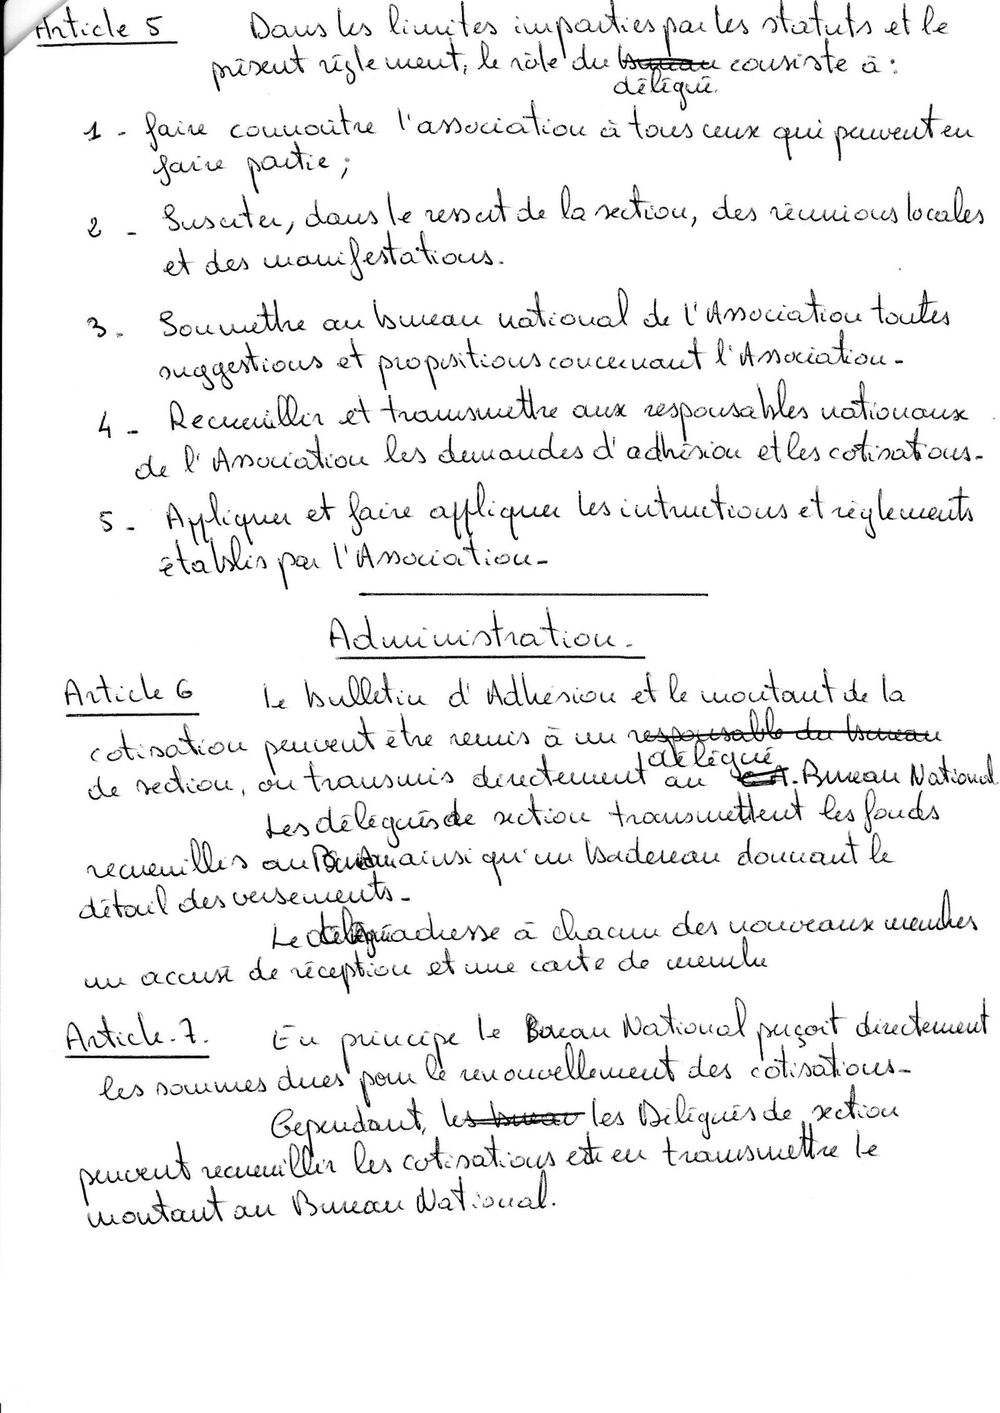 Article 5 Dans les limites imparties par les statuts et le
présent réglement, le rôle du bureau consiste à :
délégué.
1 - faire connoitre l'association à tous ceux qui peuvent en
faire partie ;
2 - Susciter, dans le ressort de la section, des réunions locales
et des manifestations.
3 - Soumettre au bureau national de l'Association toutes
suggestions et propositions concernant l'Association -
4 - Recueillir et transmettre aux responsables nationaux
de l'Association les demandes d'adhésion et les cotisations -
5 - Appliquer et faire appliquer les intructions et règlements
établis par l'Association -
Administration -
Article 6 Le bulletin d'Adhésion et le montant de la
cotisation peuvent être remis à un responsable du bureau
délégué
de section, ou transmis directement au C.A. Bureau National
Les délégués de section transmettent les fonds
recueillis au ainsi qu'un bordereau donnant le
détail des versements -
Le délégué adresse à chacun des nouveaux membres
un accusé de réception et une carte de membre
Article. 7. En principe le Bureau National perçoit directement
les sommes dues pour le renouvellement des cotisations -
Cependant, les bureau les Délégués de section
peuvent recueillir les cotisations et en transmettre le
montant au Bureau National.